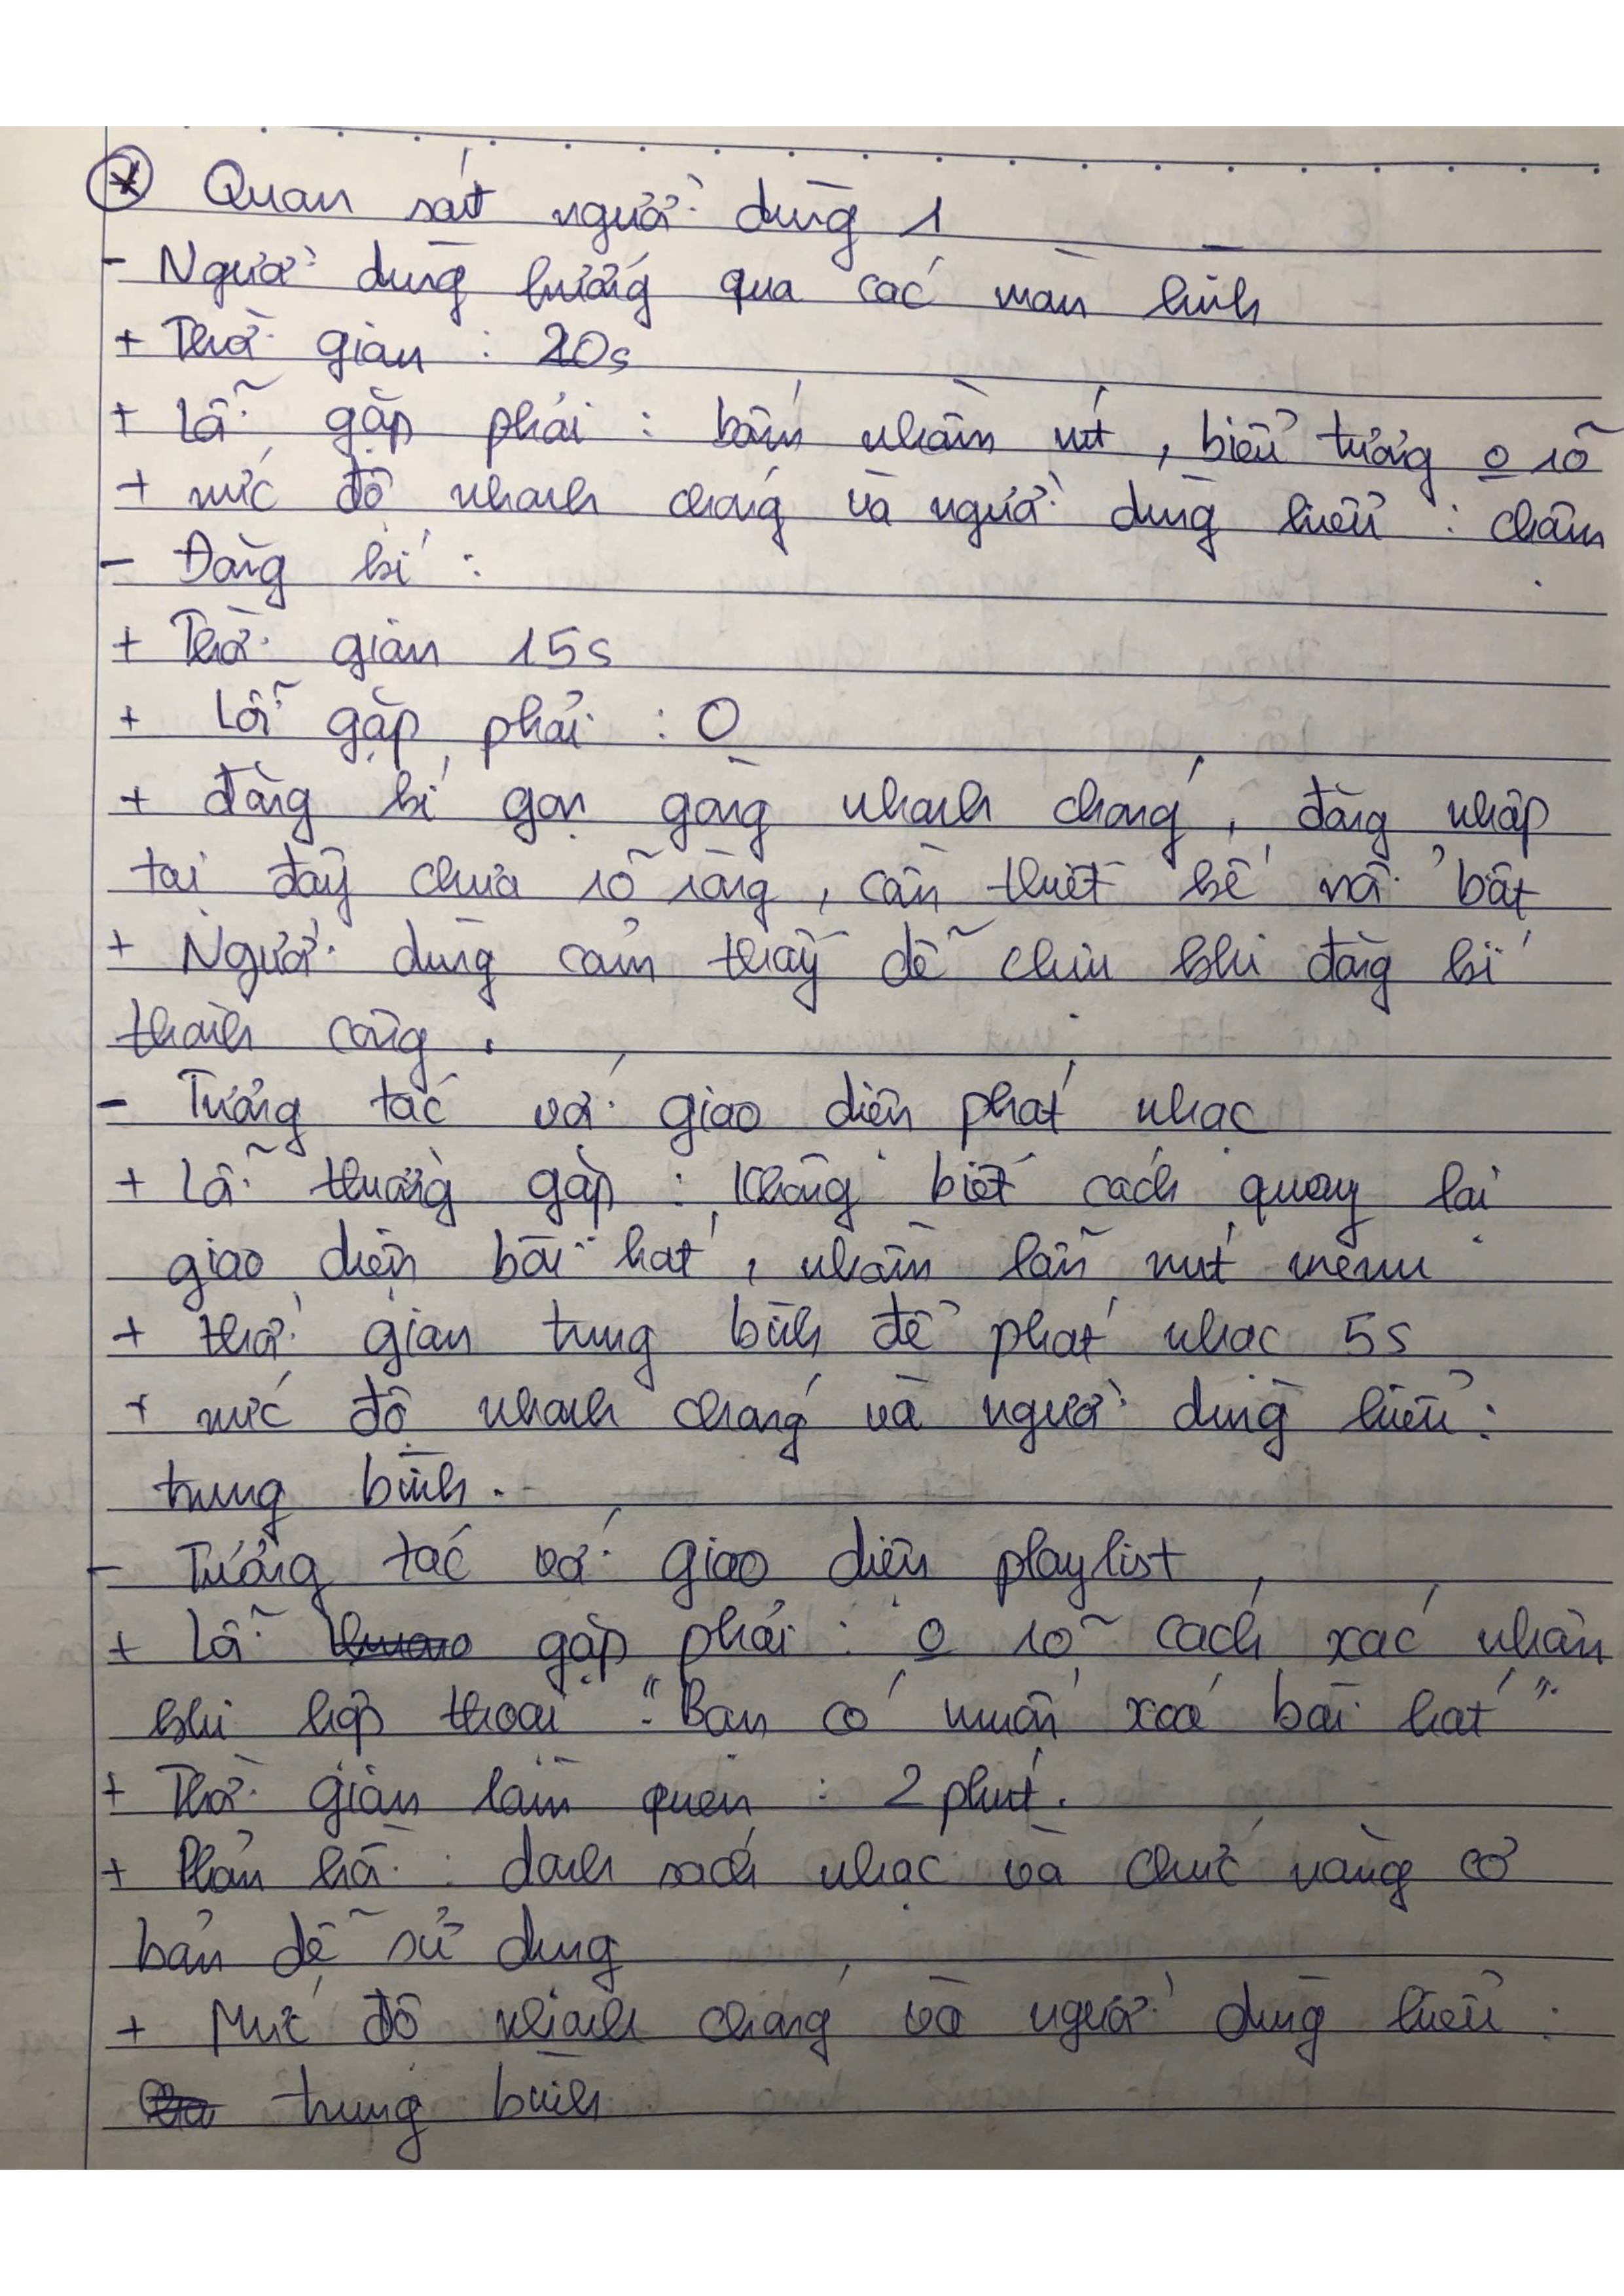 * Quan sát người dùng 1
- Người dùng hướng qua các màn hình
+ Thời gian : 20s
+ Lỗi gặp phải : bấm nhầm nút , biểu tượng o rõ
+ mức độ nhanh chóng và người dùng hiểu : chậm
- Đăng kí :
+ Thời gian 15s
+ Lỗi gặp phải : 0
+ đăng kí gọn gàng nhanh chóng , đăng nhập
tại đây chưa rõ ràng , cần thiết kế nổi bật
+ Người dùng cảm thấy dễ chịu khi đăng kí
thành công .
- Tương tác với giao diện phát nhạc
+ Lỗi thường gặp : Không biết cách quay lại
giao diện bài hát , nhầm lẫn nút menu
+ thời gian trung bình để phát nhạc 5s
+ mức độ nhanh chóng và người dùng hiểu :
trung bình .
- Tương tác với giao diện playlist
+ Lỗi gặp phải : o rõ cách xác nhận
khi hộp thoại "Bạn có muốn xoá bài hát"
+ Thời gian làm quen : 2 phút .
+ Phản hồi : danh sách nhạc và chức năng cơ
bản dễ sử dụng
+ Mức độ nhanh chóng và người dùng hiểu :
trung bình